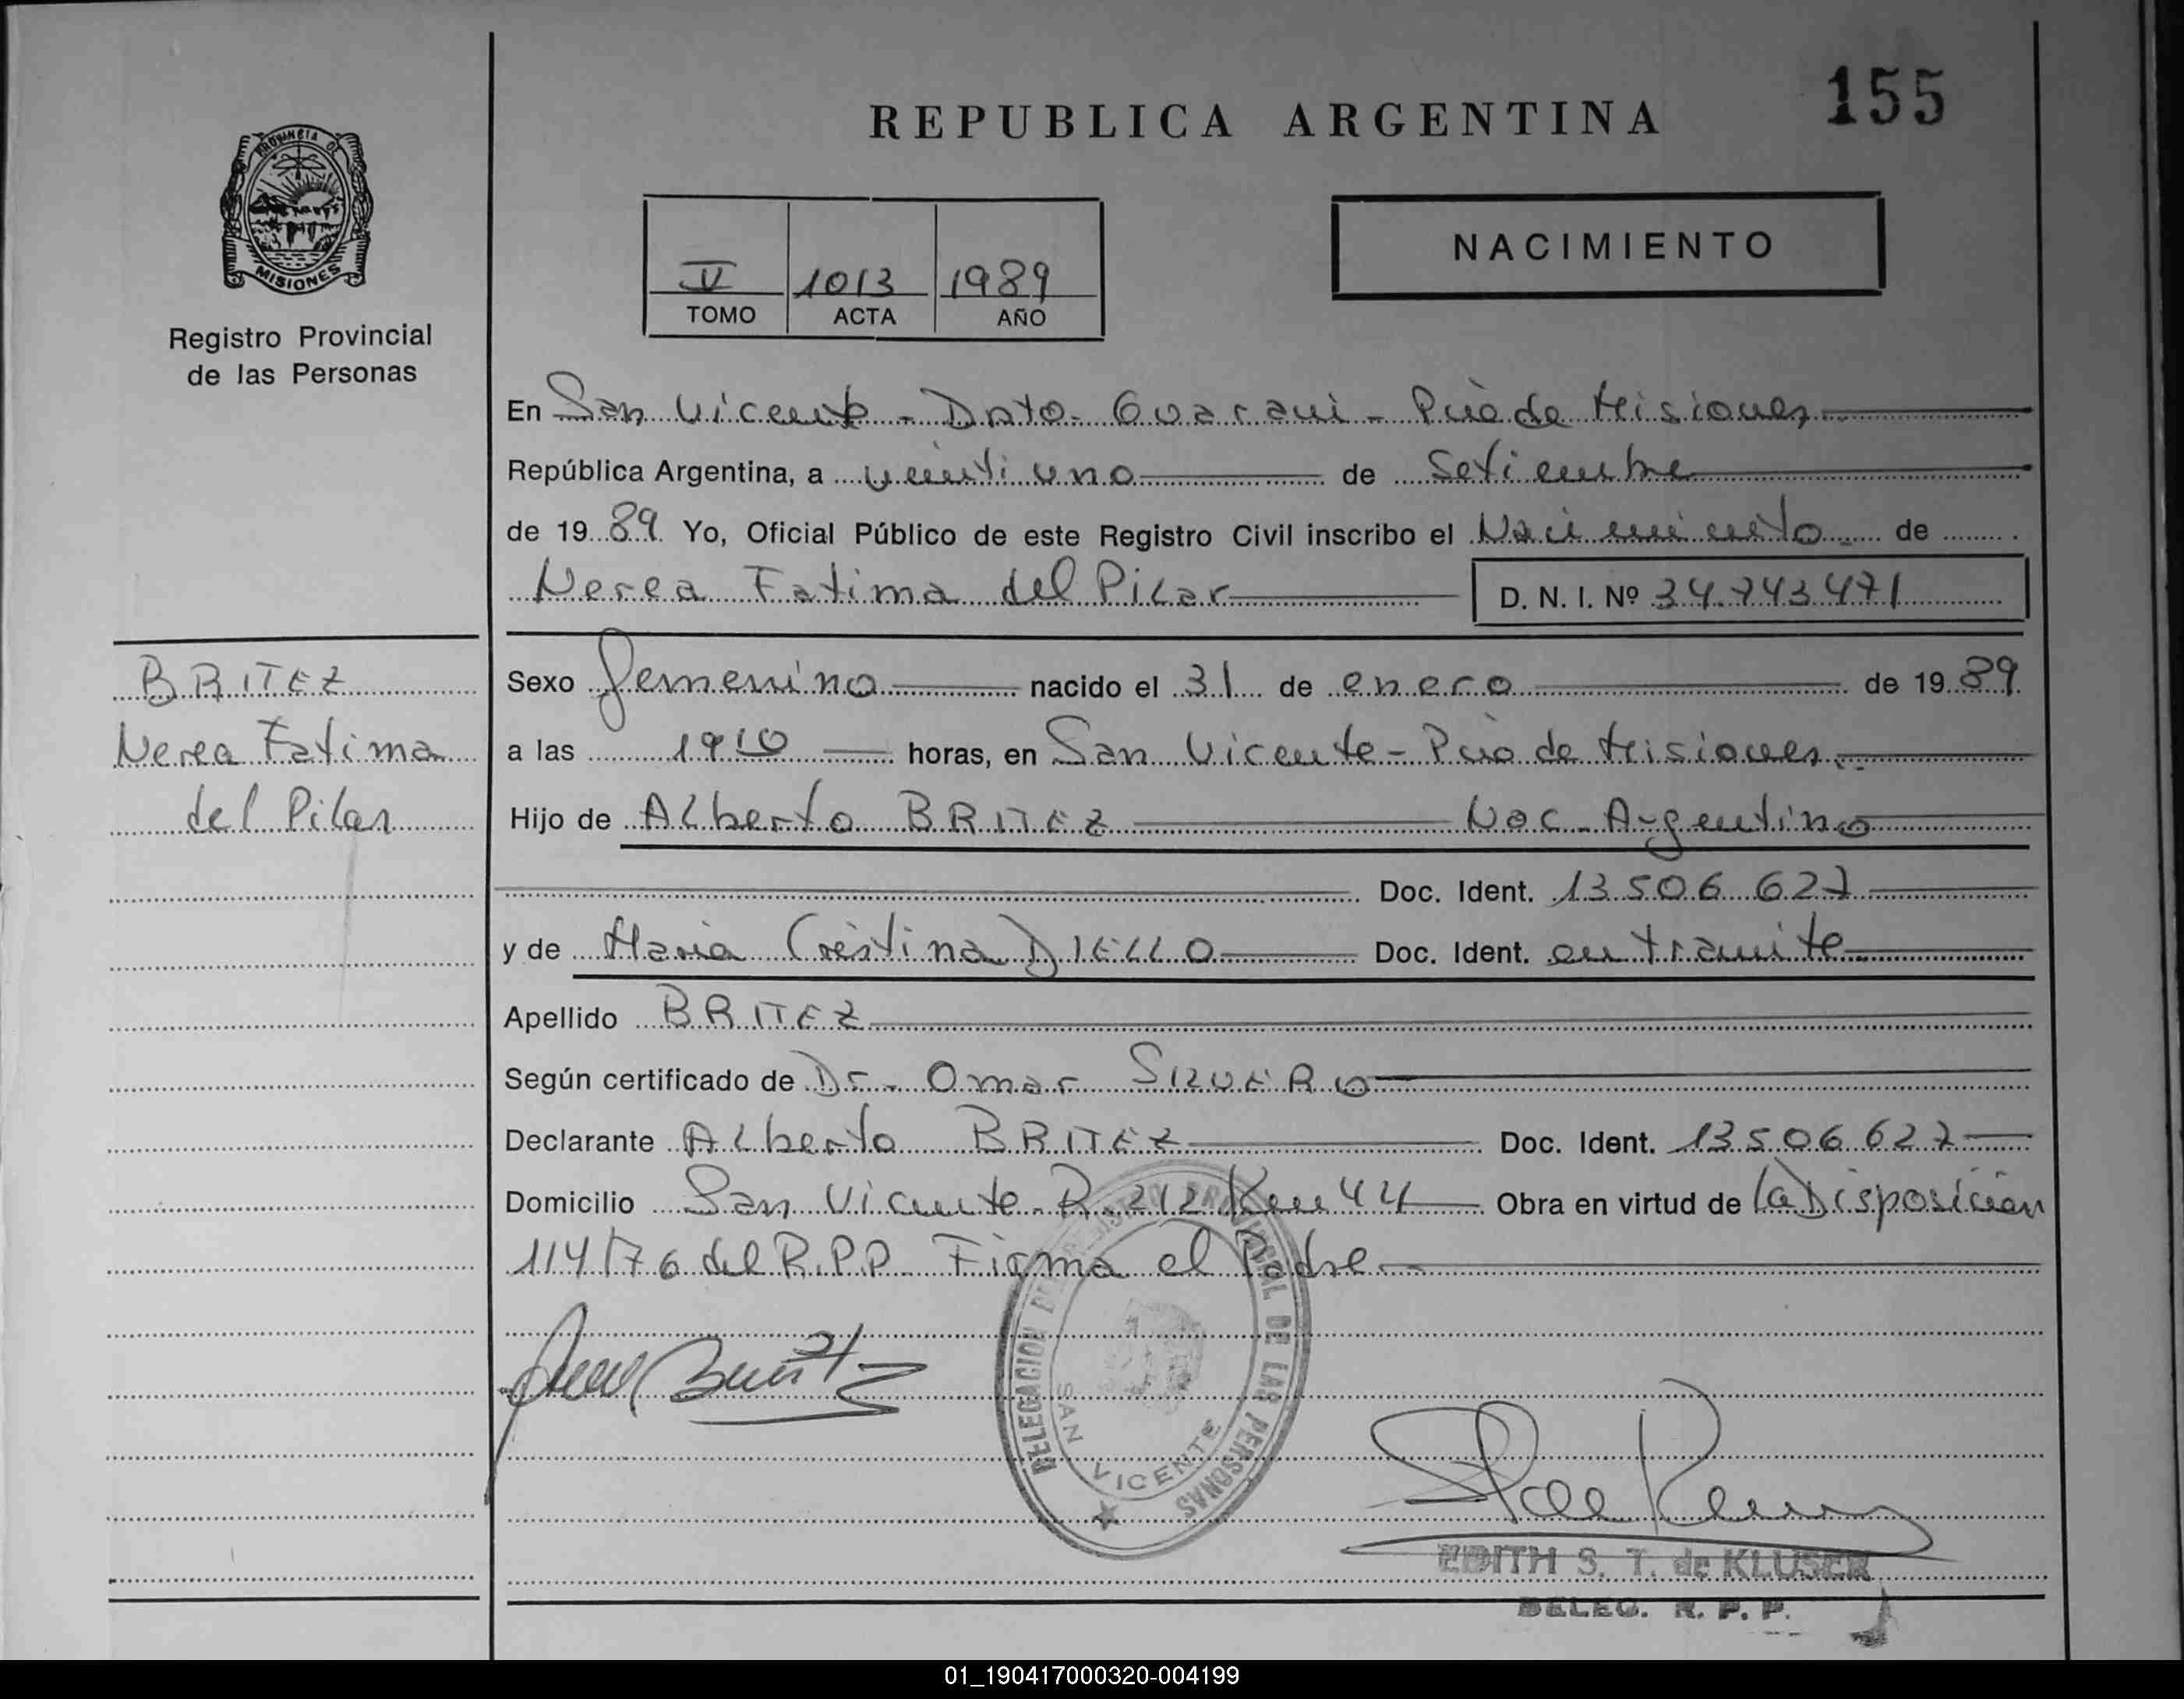 155
REPUBLICA ARGENTINA
PROVINCIA DE
MISIONES
Registro Provincial
de las Personas
V 1013 1989
TOMO ACTA AÑO
NACIMIENTO
En San Vicente - Dpto. Guarani - Pcia de Misiones
República Argentina, a veinti uno de Setiembre
de 19 89 Yo, Oficial Público de este Registro Civil inscribo el Nacimiento de
Nerea Fatima del Pilar D. N. I. Nº 34.743.471
BRITEZ
Nerea Fatima
del Pilar
Sexo femenino nacido el 31 de enero de 19 89
a las 1910 horas, en San Vicente - Pcia de Misiones
Hijo de Alberto BRITEZ Nac. Argentino
Doc. Ident. 13 506 627
y de Maria Cristina DIELLO Doc. Ident. en tramite
Apellido BRITEZ
Según certificado de Dr. Omar
Declarante Alberto BRITEZ Doc. Ident. 13 506 627
Domicilio San Vicente - R. 212 Km 44 Obra en virtud de la Disposición
114/76 del R.P.P Firma el Padre
DELEGACION DEL REGISTRO PROVINCIAL DE LAS PERSONAS
SAN VICENTE
EDITH S. T. de KLUSER
DELEG. R. P. P.
01_190417000320-004199